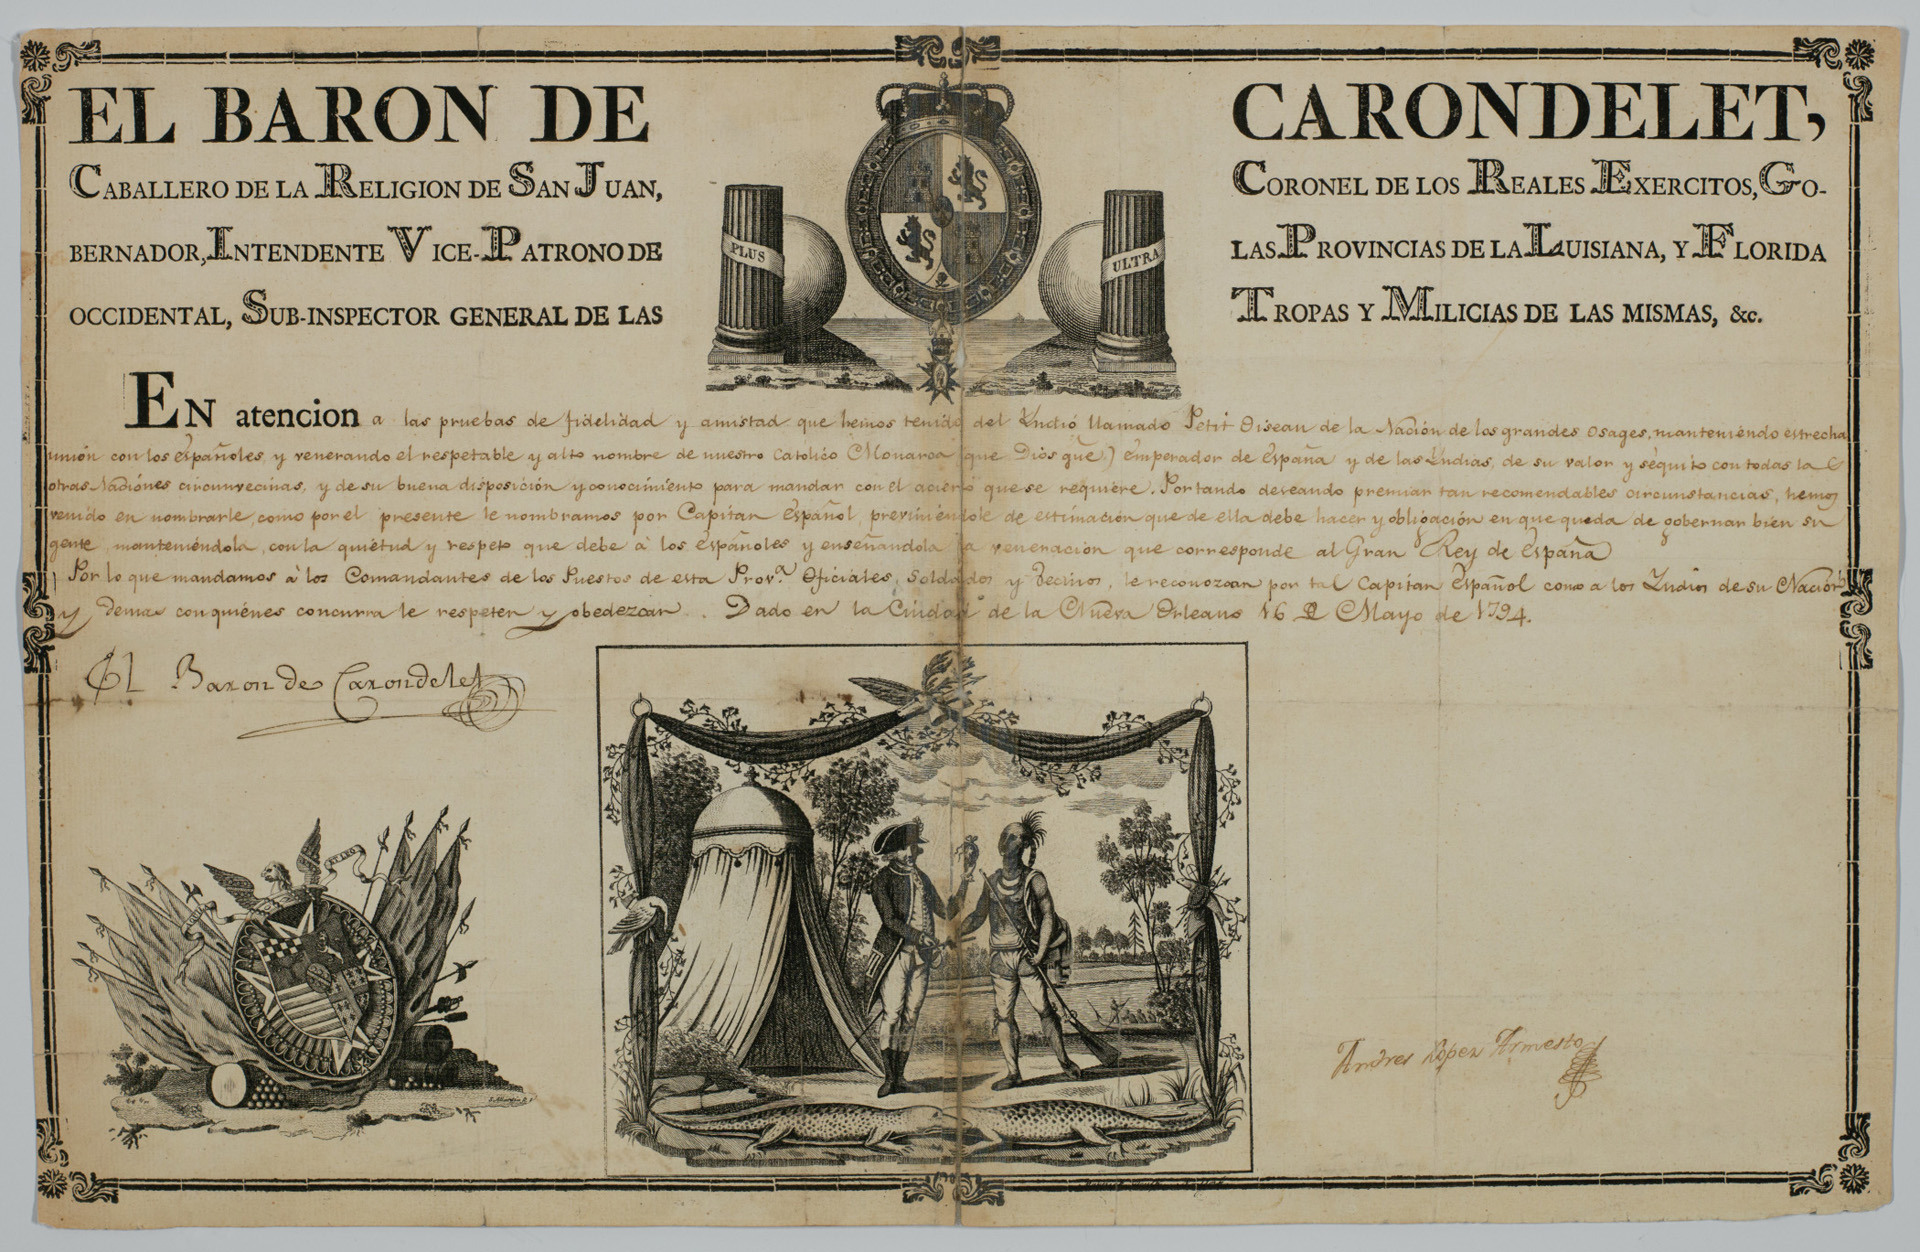 EL BARON DE CARONDELET,
CABALLERO DE LA RELIGION DE SAN JUAN, CORONEL DE LOS REALES EXERCITOS, GO-
BERNADOR, INTENDENTE VICE-PATRONO DE LAS PROVINCIAS DE LA LUISIANA, Y FLORIDA
OCCIDENTAL, SUB-INSPECTOR GENERAL DE LAS TROPAS Y MILICIAS DE LAS MISMAS, &c.
PLUS
ULTRA
EN atencion a las pruebas de fidelidad y amistad que hemos tenido del Indio llamado Petit Oiseau de la Nación de los grandes Osages, manteniendo estrecha
unión con los Españoles, y venerando el respetable y alto nombre de nuestro Catolico Monarca (que Dios gue.) Emperador de España y de las Indias, de su valor y séquito con todas las
otras Naciónes circunvecinas, y de su buena disposición y conocimiento para mandar con el acierto que se requiere. Por tando deseando premiar tan recomendables circunstancias, hemos
venido en nombrarle, como por el presente le nombramos por Capitan Español, previniéndole de estimación que de ella debe hacer y obligación en que queda de gobernar bien su
gente, manteniéndola, con la quiétud y respeto que debe à los Españoles y enseñandola la veneración que corresponde al Gran Rey de España
Por lo que mandamos à los Comandantes de los Puestos de esta Prov.ª Oficiales, Soldados y Vecinos, le reconozcan por tal Capitan Español como a los Indios de su Nación
y demas con quiénes concurra le respeten y obedezcan. Dado en la Ciudad de la Nueva Orleans 16 de Mayo de 1794.
El Baron de Carondelet
Andres López Armesto